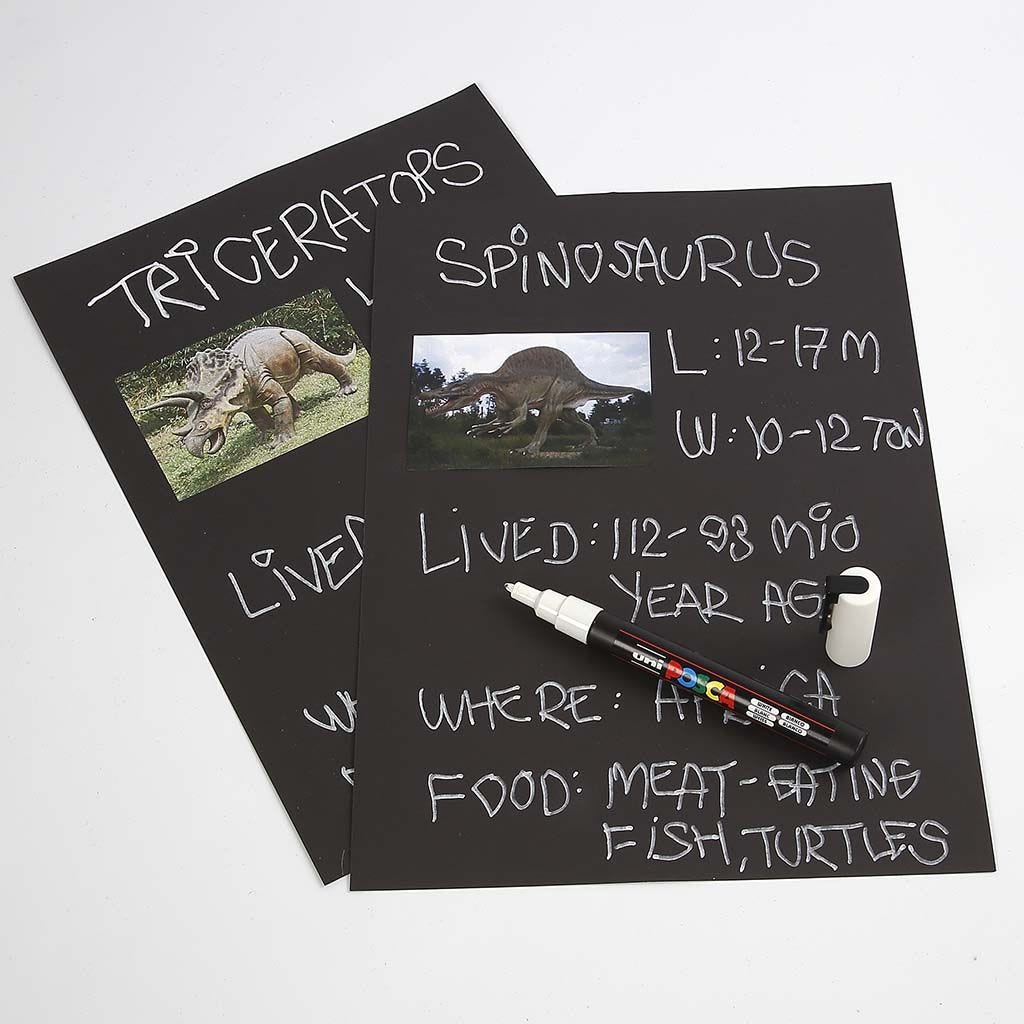 TRICERATOPS
L
LIVED
WH
SPINOSAURUS
L: 12-17 M
W: 10-12 TON
LIVED: 112-93 MIO
YEAR AG
WHERE:
FOOD: MEAT-EATING
FISH, TURTLES
uni POSCA
WHITE
BLANC
BIANCO
BLANCO